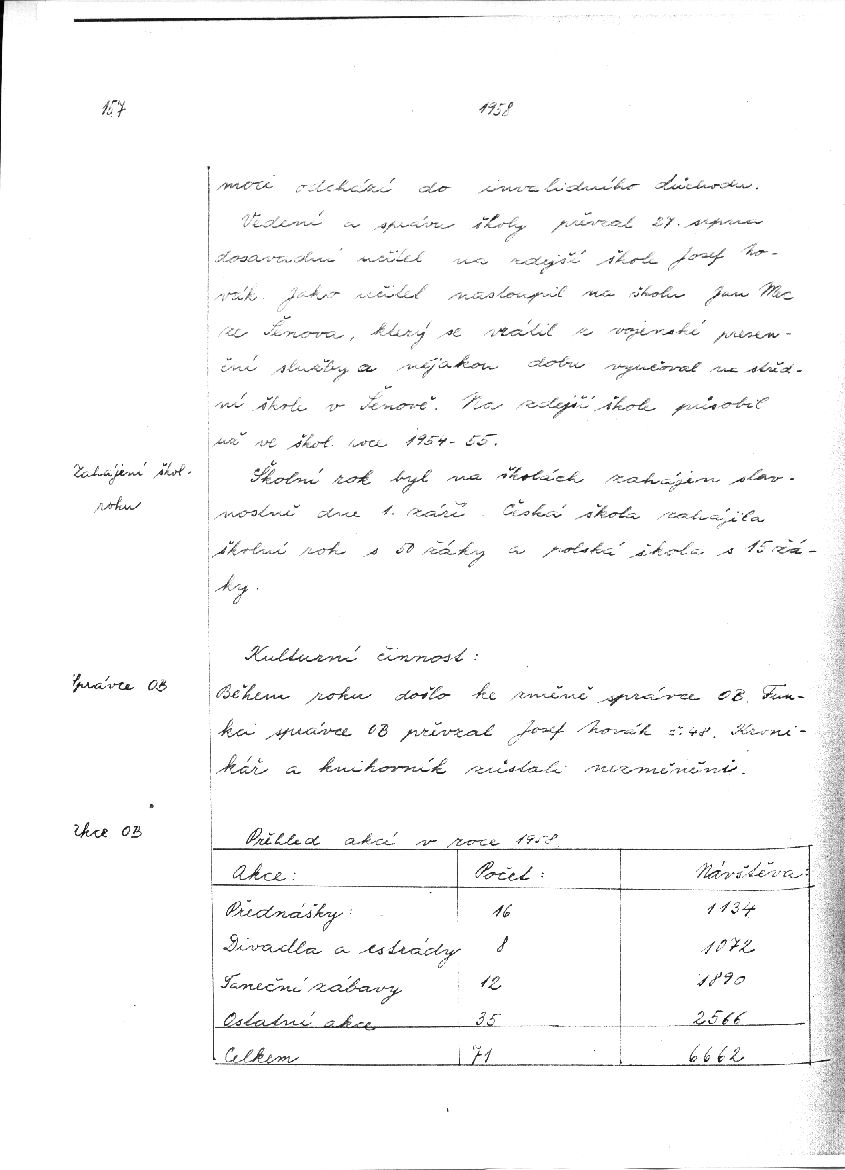 157 1958
moci odchází do invalidního důchodu.
Vedení a správu školy převzal 27. srpna
dosavadní učitel na zdejší škole Josef No-
vák. Jako učitel nastoupil na školu Jan Mec
ze Šenova, který se vrátil z vojenské presen-
ční služby a nějakou dobu vyučoval na střed-
ní škole v Šenově. Na zdejší škole působil
už ve škol. roce 1954-55.
Zahájení škol.
roku
Školní rok byl na školách zahájen slav-
nostně dne 1. září. Česká škola zahájila
školní rok s 50 žáky a polská škola s 15 žá-
ky.
Kulturní činnost:
Správce OB
Během roku došlo ke změně správce OB. Fun-
kci správce OB převzal Josef Novák č. 48. Kroni-
kář a knihovník zůstali nezměněni.
Akce OB
Přehled akcí v roce 1958.
Akce: Počet: Návštěva:
Přednášky: 16 1134
Divadla a estrády 8 1072
Taneční zábavy 12 1890
Ostatní akce 35 2566
Celkem 71 6662